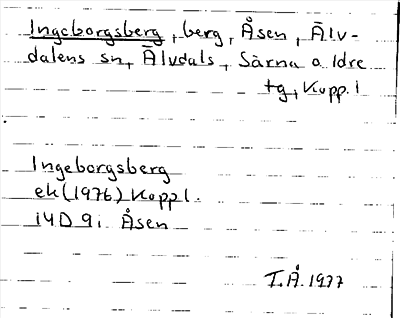 Ingeborgsberg, berg, Åsen, Älv-
dalens sn, Älvdals, Särna o Idre
tg, Kopp.l
Ingeborgsberg
ek (1976) Koppl.
14D 9i Åsen
I.Å. 1977